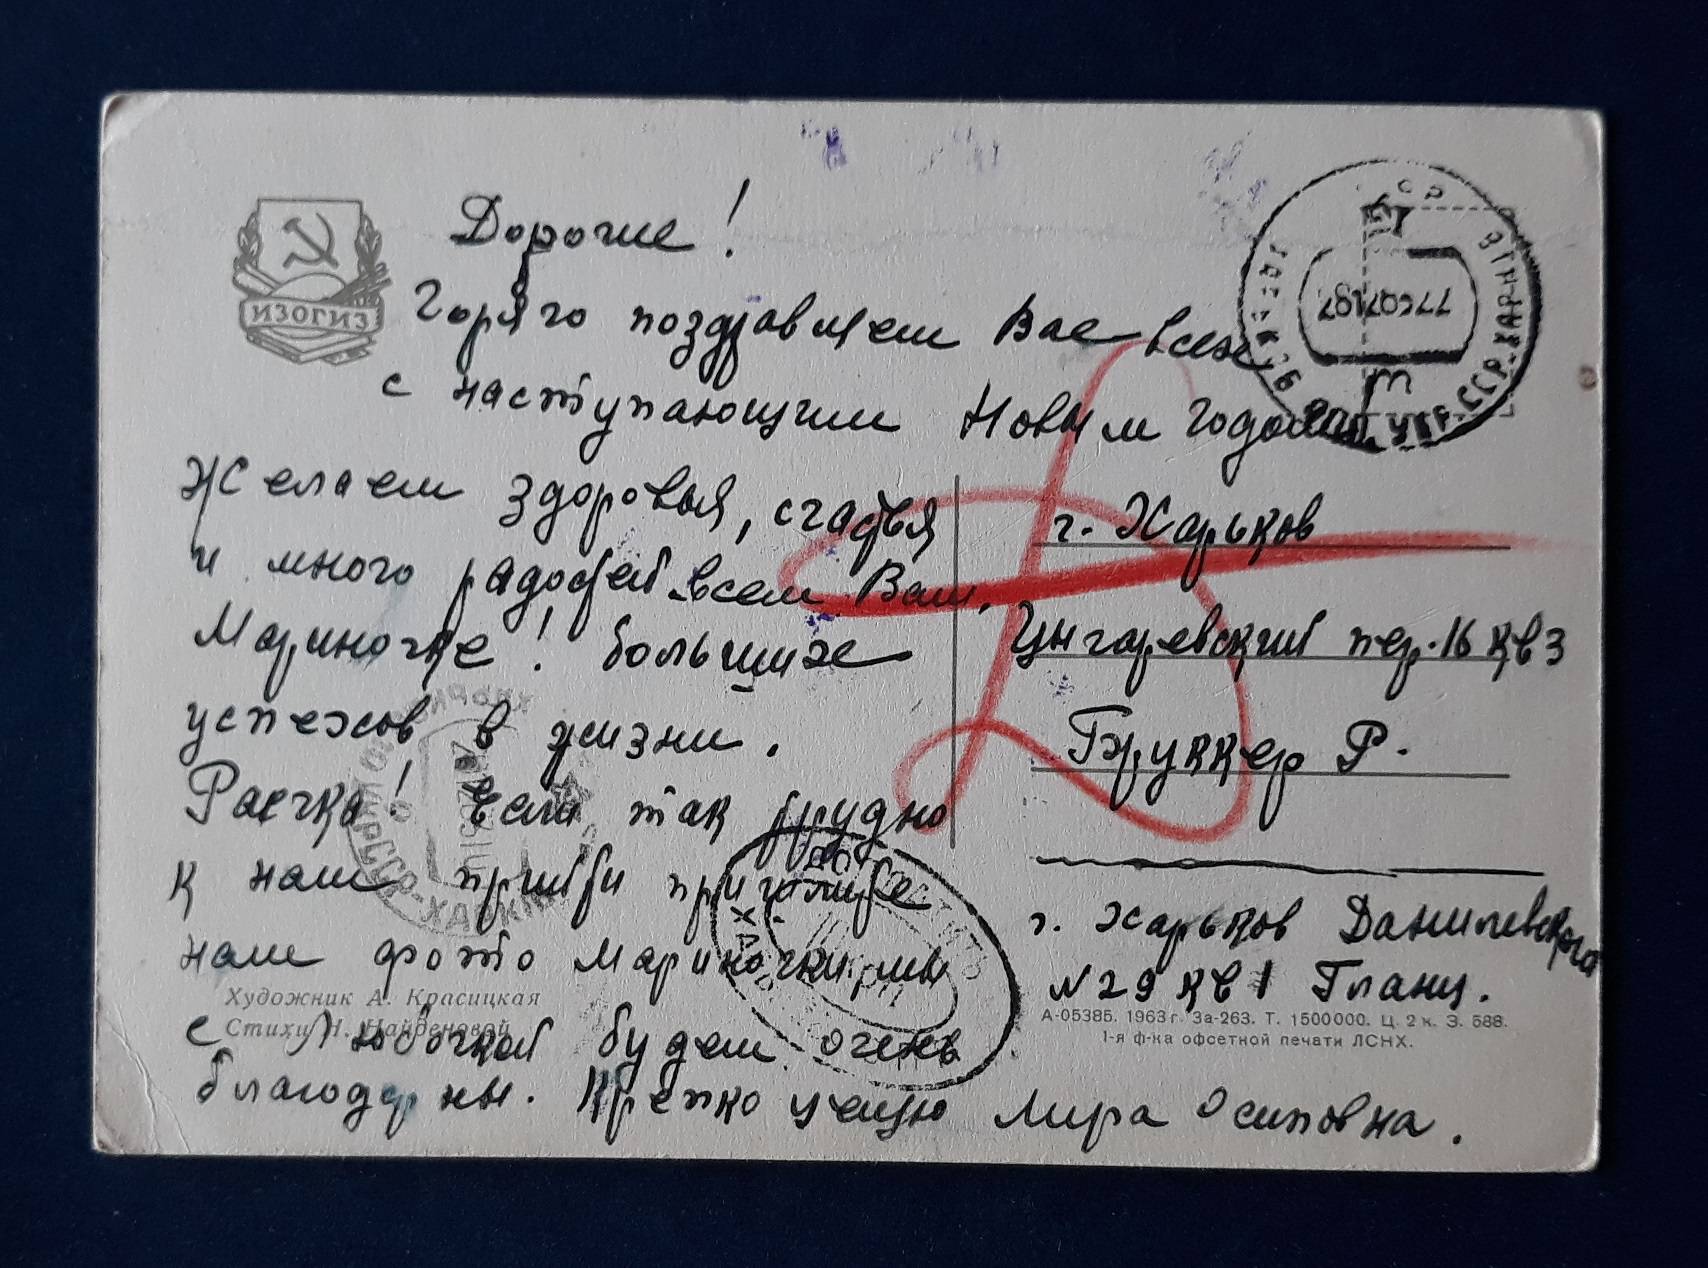 ИЗОГИЗ
Дорогие!
Горячо поздравляем Вас всех
с наступающим Новым годом.
Желаем здоровья, счастья
и много радостей всем Вам,
Мариночке! больших
успехов в жизни.
Раечка! Если так трудно
к нам прийти пришлите
нам фото Мариночки мы
с Любочкой будем очень
благодарны. Крепко целую Мира Осиповна.
Художник А. Красицкая
Стихи Н. Найденовой
г. Харьков
пер. 16 кв 3
Бруккер Р.
г. Харьков Данилевского
№ 29 кв 1 Гланц.
А-05385. 1963 г. За-263. Т. 1500000. Ц. 2 к. З. 588.
1-я ф-ка офсетной печати ЛСНХ.
УКР.ССР-ХАР